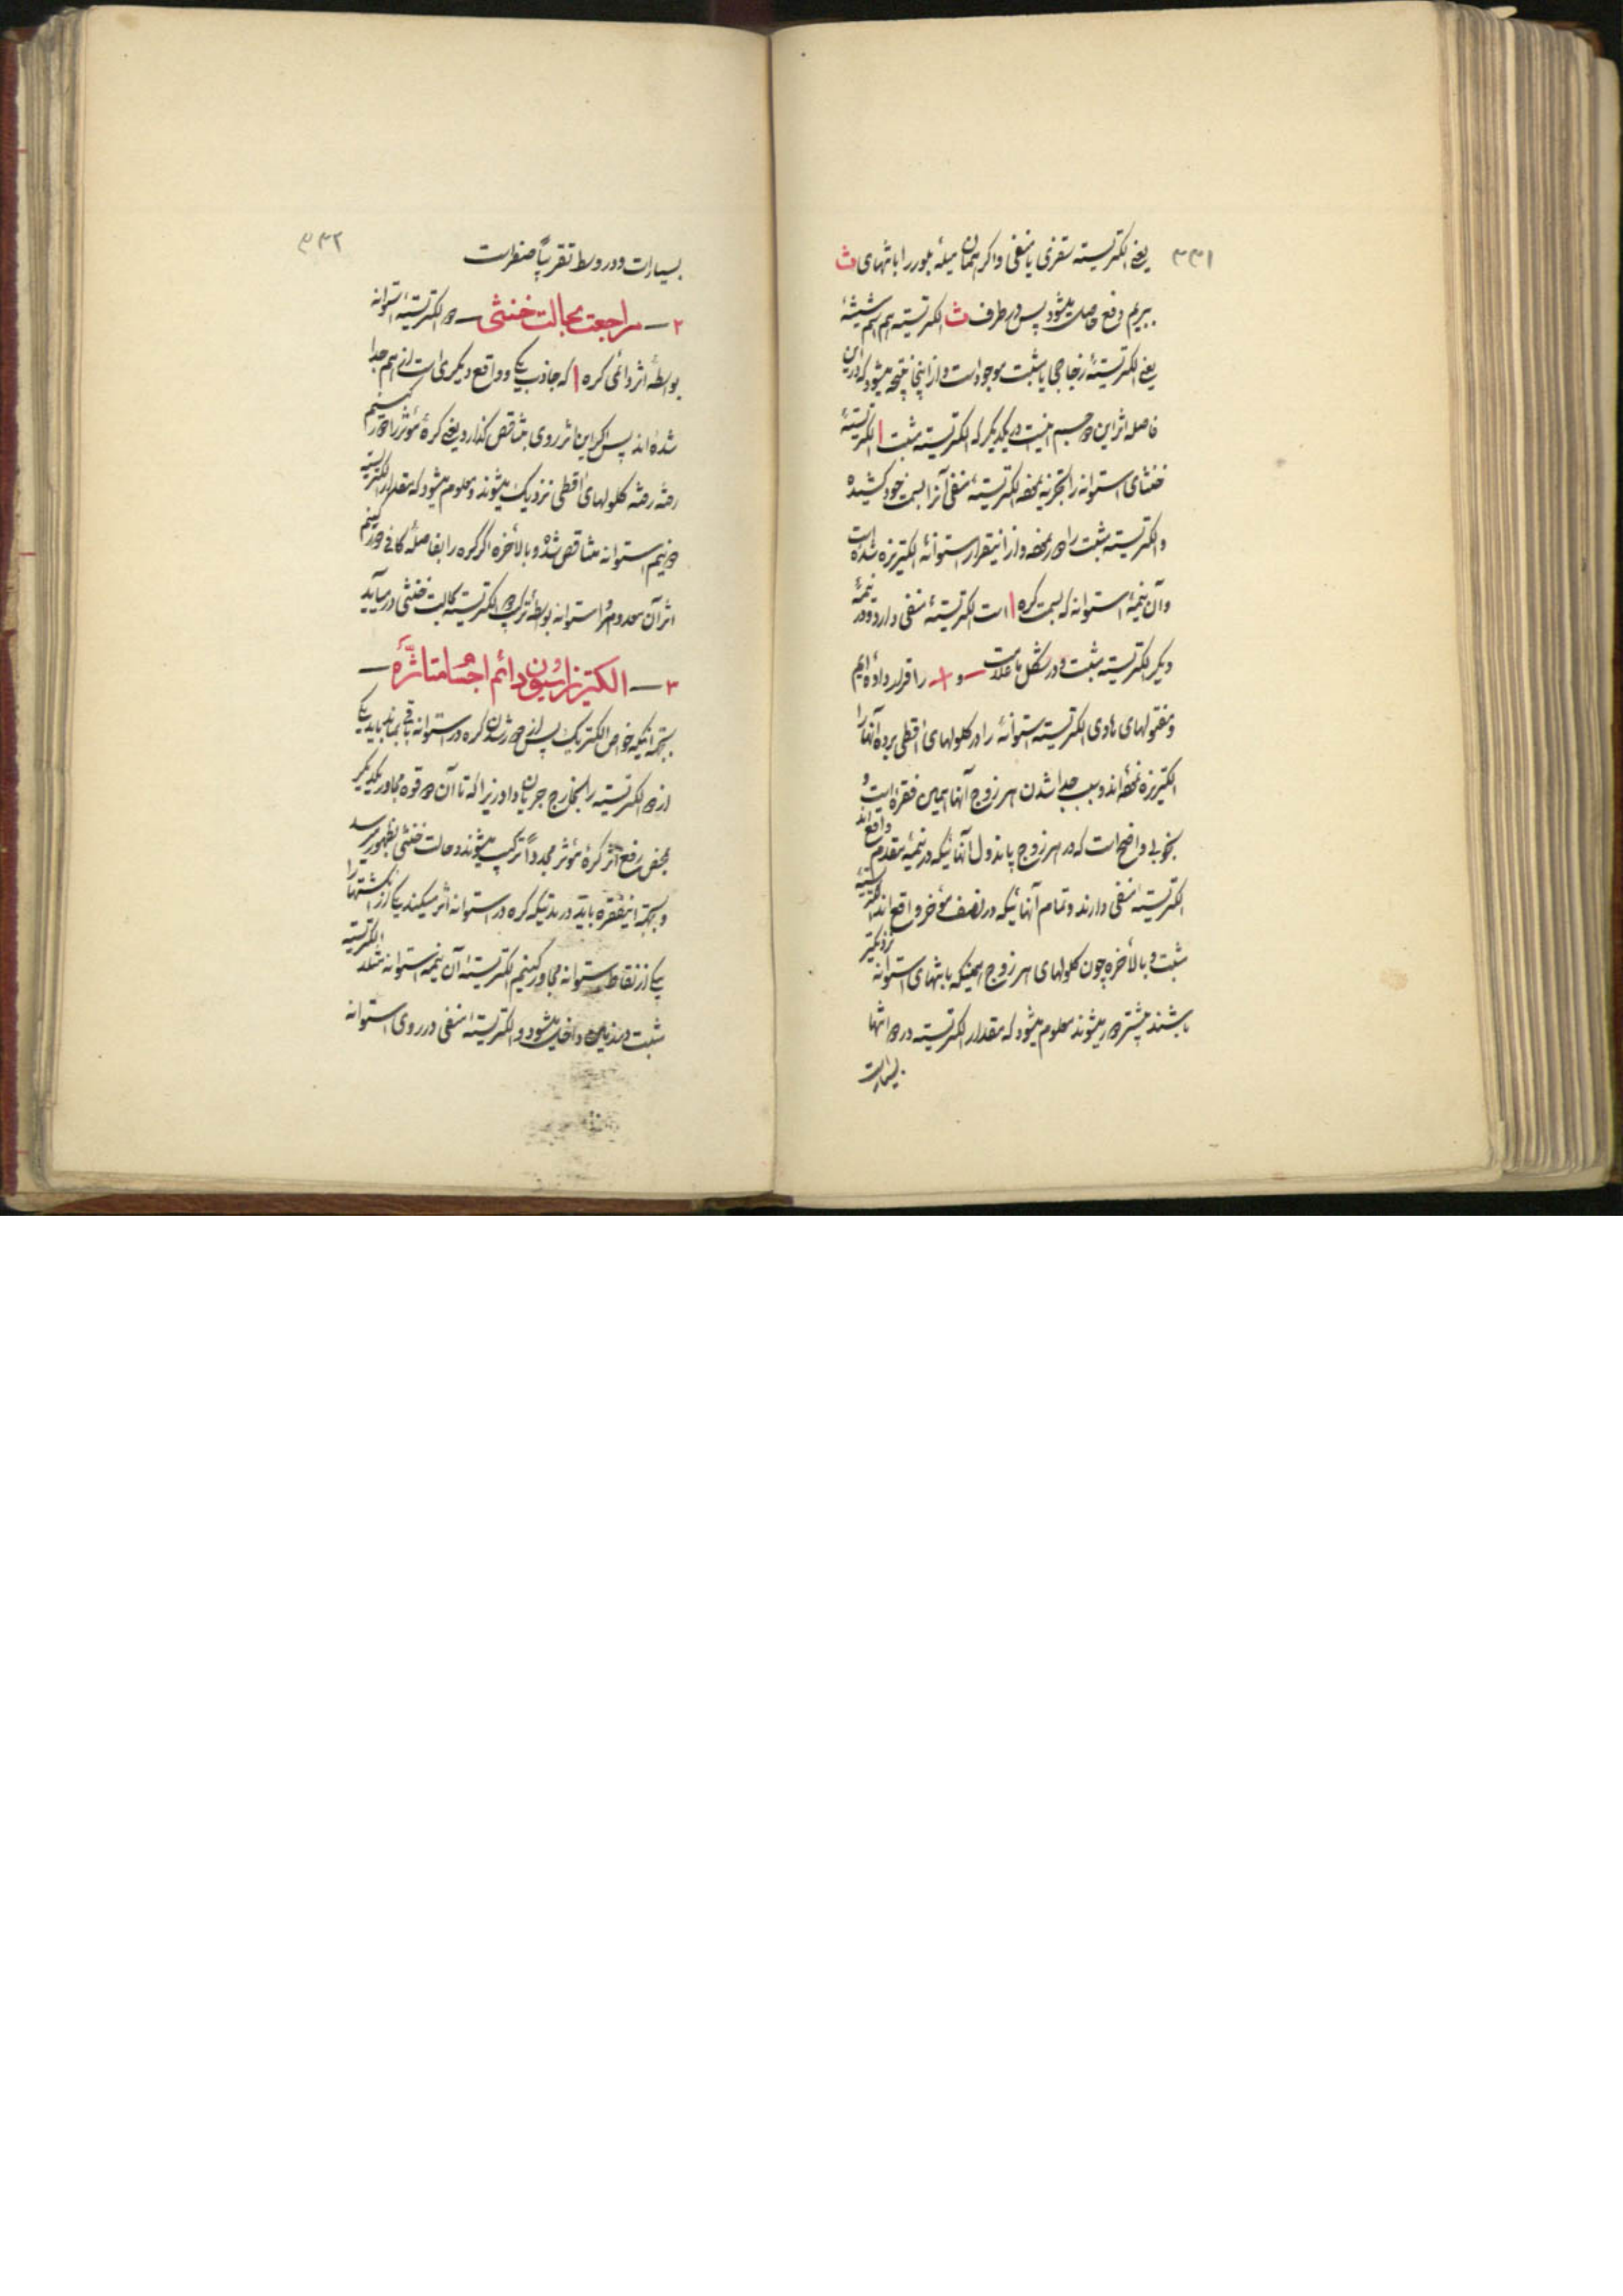 ۳۳۱
یعنی الکتریسیته سقزی یا منفی و اگر همان میله بلور را بانتهای ث
ببریم دفع حاصل میشود پس در طرف ث الکتریسیته هم اسم شیشه
یعنی الکتریسیتهٔ زجاجی یا مثبت موجود است و از اینجا نتیجه میشود که در این
فاصله اثر این دو جسم اینست در یکدیگر که الکتریسیته مثبت ا الکتریسیتهٔ
خنثای استوانه را تجزیه نموده الکتریسیتهٔ منفی آنرا بسمت خود کشیده
و الکتریسیته مثبت را دور نموده و از اینقرار استوانهٔ الکتریزه شده است
و آن نیمهٔ استوانه که بسمت کره ا است الکتریسیتهٔ منفی دارد و در نیمهٔ
دیگر الکتریسیته مثبت و در شکل با علامت − و + را قرار داده ایم
و مفتولهای هادی الکتریسیته استوانهٔ را در گلولهای اقطی برده آنها را
الکتریزه نموده اند و سبب جدا شدن هر زوج آنها همین فقره است و
بخوبی واضح است که در هر زوج پاندول آنهائیکه در نیمهٔ مقدم واقع اند
الکتریسیتهٔ منفی دارند و تمام آنهائیکه در نصف مؤخر واقع اند الکتریسیتهٔ
مثبت و بالأخره چون گلولهای هر زوج همینکه بانتهای استوانه نزدیکتر
باشند بیشتر دور میشوند معلوم میشود که مقدار الکتریسیته در دو انتها
بسیار است
۳۳۲
بسیار است و در وسط تقریباً صفر است
۲ — مراجعت بحالت خنثی — دو الکتریسیتهٔ استوانه
بواسطهٔ اثر دائمی کره ا که جاذب یکی و دافع دیگری است از هم جدا
شده اند پس اگر این اثر روی بتناقص گذارد یعنی کرهٔ مؤثر را دور کنیم
رفته رفته گلولهای اقطی نزدیک میشوند و معلوم میشود که مقدار الکتریسیته
دو نیم استوانه متناقص شده و بالأخره اگر کره را بفاصلهٔ کافی دور کنیم
اثر آن معدوم و استوانه بواسطهٔ ترکیب دو الکتریسیته بحالت خنثی در میآید
۳ — الکتریزاسیون دائم اجسام متاثره —
بجهة اینکه خواص الکتریک پس از دور شدن کره در استوانه باقی بماند باید یکی
از دو الکتریسیته را بخارج جریان داد زیرا که تا آن دو قوه مجاور یکدیگر
بمحض رفع اثر کرهٔ مؤثر مجدداً ترکیب میشوند و حالت خنثی بظهور میرسد
و بجهة اینفقره باید در مدتیکه کره در استوانه اثر میکند یکی از انگشتها را
بیکی از نقاط استوانه مجاور کنیم الکتریسیتهٔ آن نیمه استوانه الکتریسیته
مثبت در زمین داخل میشود و الکتریسیتهٔ منفی در روی استوانه